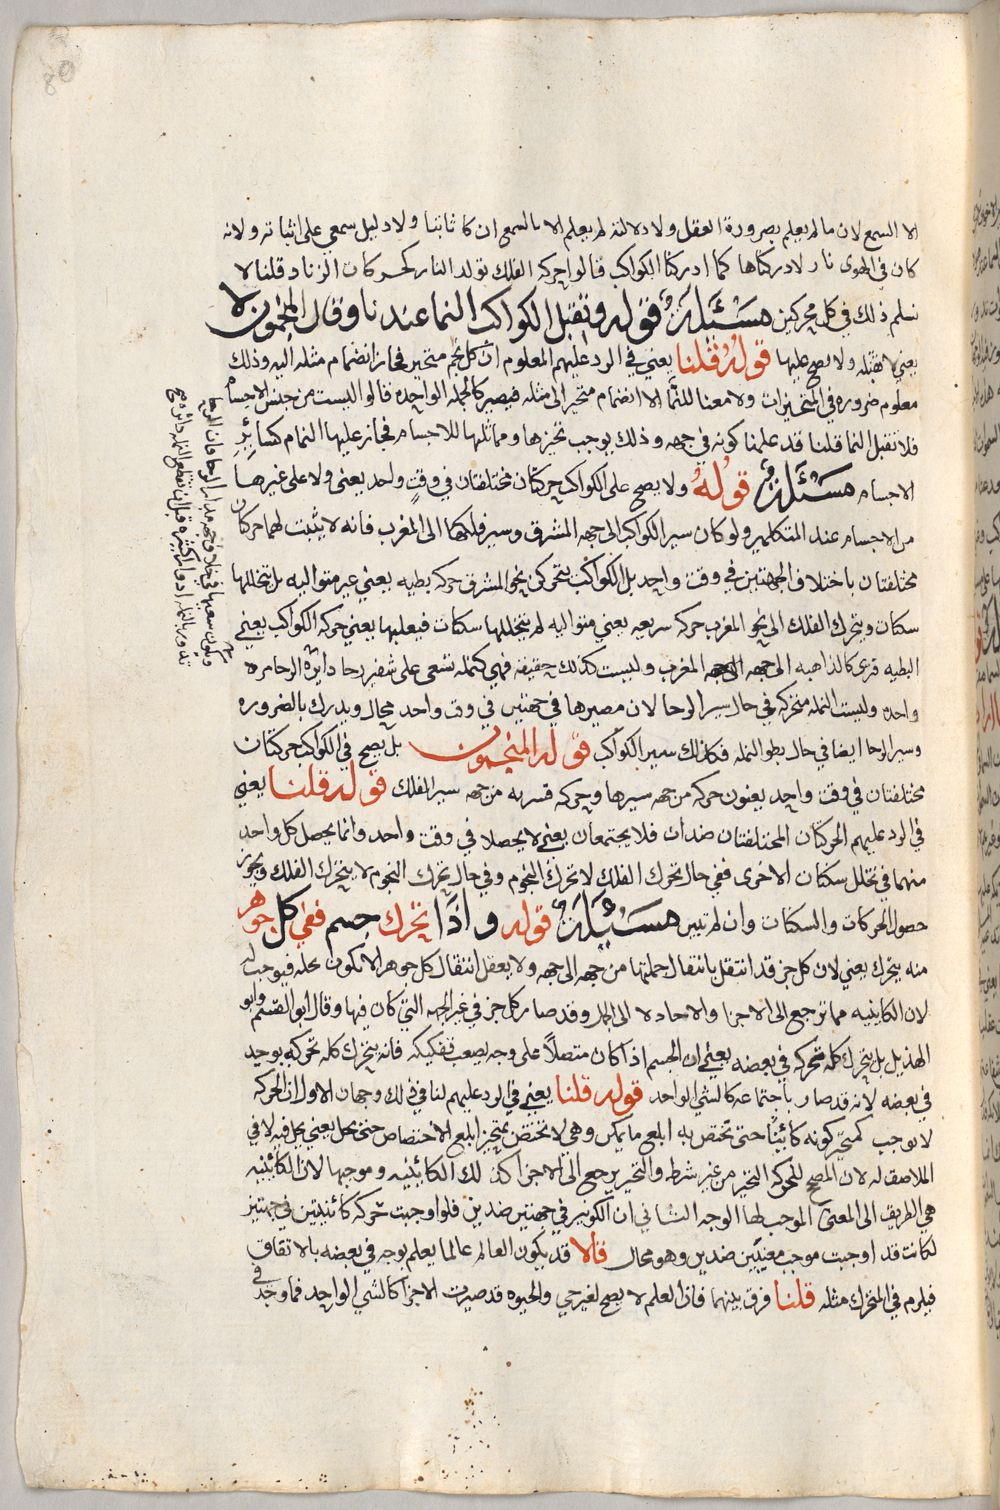 الا السمع لان ما لم يعلم بضرورة العقل ولا دلالة لم يعلم الا بالسمع ان كا ثابتا ولا دليل سمعي على اثباته ولانه
كان في الهوى نار لادركناها كما ادركنا الكواكب قالوا حركه الفلك تولد النار كحركات الزناد قلنا لا
نسلم ذلك في كل محركين مسئلة قوله وتقبل الكواكب النما عندنا وقال المنجمون لا
يعني لا تقبله ولا يصح عليها قوله قلنا يعني في الرد عليهم المعلوم ان كل نجم متحيز فجاز انضمام مثله اليه وذلك
معلوم ضروره في المتحيزات ولا معنا للنما الا انضمام متحيز الى مثله فيصير كالجمله الواحده قالوا ليست من جنس الاجسام
فلا تقبل النما قلنا قد علمنا كونه في جهه وذلك يوجب تحيزها ومماثلها للاجسام فجاز عليها النمام كسائر
الاجسام مسئلة قوله ولا يصح على الكواكب حركتان مختلفتان في وقت واحد يعني ولا على غيرها
من الاجسام عند المتكلمين ولو كان سير الكواكب الى جهه المشرق وسير فلكها الى المغرب فانه لا يثبت لهما حركتان
مختلفتان باختلاف الجهتين في وقت واحد بل الكواكب تتحرك نحو المشرق حركه بطيه يعني غير متواليه بل تتخللها
سكنات ويتحرك الفلك الى نحو المغرب حركه سريعه يعني متواليه لم يتخللها سكنات فيغلبها يعني حركه الكواكب يعني
البطيه فترى كالذاهبه الى جهه المغرب وليست كذلك حقيقه فهي كنمله تسعى على شفير رحا دايرة الرحا مره
واحده وليست النمله متحركه في حال سير الرحا لان مصيرها في جهتين في وقت واحد محال ويدرك بالضروره
وسير الرحا ايضا في حال بطو النمله فكذلك سير الكواكب قوله المنجمون بل يصح في الكواكب حركتان
مختلفتان في وقت واحد يعنون حركه من جهه سيرها وحركه قسريه من جهه سير الفلك قوله قلنا يعني
في الرد عليهم الحركتان المختلفتان ضدان فلا يجتمعان يعني لا يحصلا في وقت واحد وانما يحصل كل واحد
منهما في تخلل سكنات الاخرى ففي حال تحرك الفلك لا تحرك النجوم وفي حال تحرك النجوم لا يتحرك الفلك ويجوز
حصول الحركات والسكنات وان لم تبين مسئلة قوله واذا تحرك جسم ففي كل جوهر
منه يتحرك يعني لان كل جز قد انتقل بانتقال جملتها من جهه الى جهه ولا يعقل انتقال كل جوهر الا بكون يحله فيوجب له
لان الكاينيه مما ترجع الى الاجزا والاحاد لا الى الجمل وقد صار كل جز في غير الجهه التي كان فيها وقال ابو القسم وابو
الهذيل بل يتحرك كله بحركه في بعضه يعني ان الجسم اذا كان متصلا على وجه يصعب تفكيكه فانه يتحرك كله بحركه توجد
في بعضه لانه قد صار باجتماعه كالشي الواحد قوله قلنا يعني في الرد عليهم لنا في ذلك وجهان الاول ان الحركه
لا توجب كمتحيز كونه كائينا حتى تختص به ابلغ ما يمكن وهي لا تختص بمتحيز ابلغ الاختصاص حتى تحل يعني تحل فيه لا في
الملاصق له لان المصحح للحركه التحيز من غير شرط والتحيز يرجع الى الاجزا كذلك الكائينيه وموجبها لان الكائينيه
هي الطريق الى المعنى الموجب لها الوجه الثاني ان الكونين في جهتين ضدين فلو اوجبت حركه كائنيتين في جهتين
لكانت قد اوجبت موجب معنيين ضدين وهو محال قالا قد يكون العالم عالما بعلم يوجد في بعضه بالاتفاق
فيلزم في المتحرك مثله قلنا فرق بينهما فان العلم لا يصح لغير حي والحيوه قد صيرت الاجزا كالشي الواحد فما وجد في